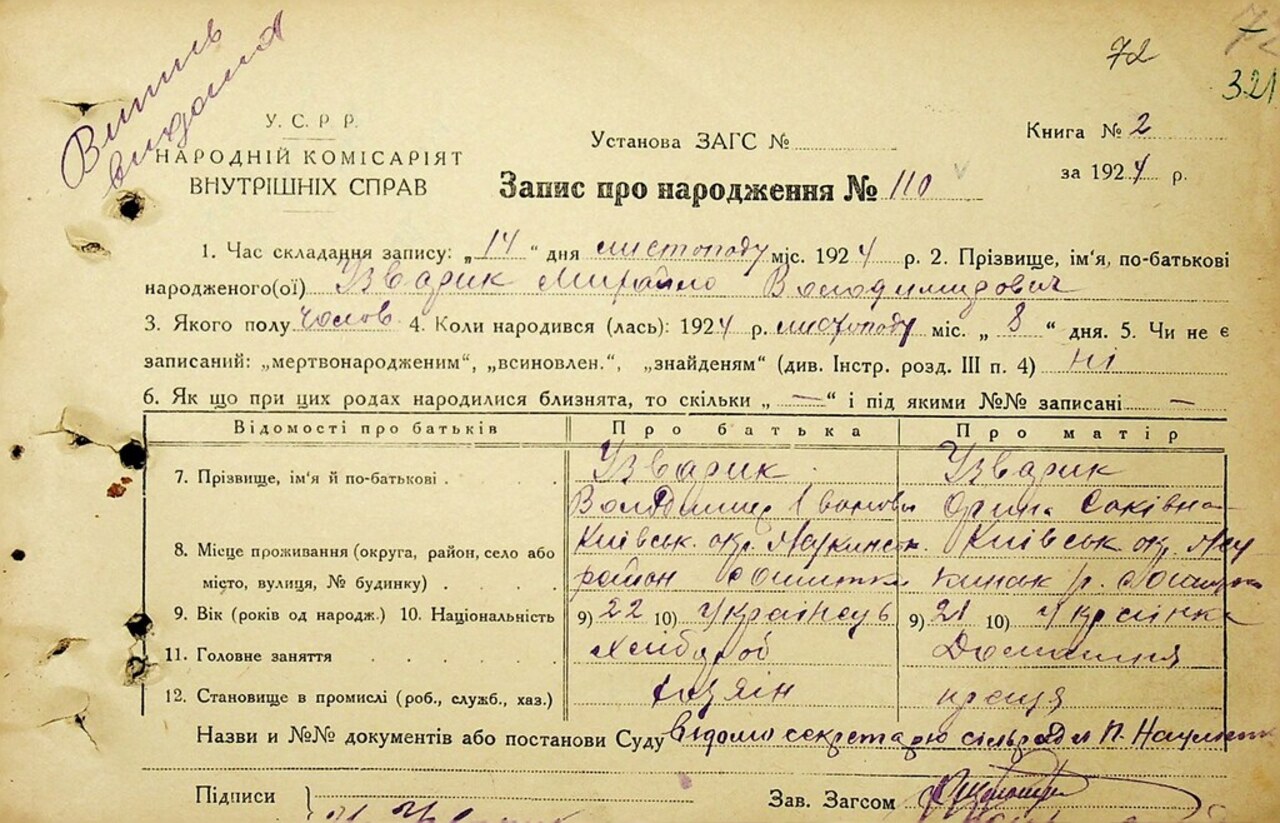 Витяг
видана
72
321
У. С. Р. Р.
НАРОДНІЙ КОМІСАРІЯТ
ВНУТРІШНІХ СПРАВ
Установа ЗАГС №
Книга № 2
за 1924 р.
Запис про народження № 110
1. Час складання запису: „14“ дня листопаду міс. 1924 р. 2. Прізвище, ім'я, по-батькові
народженого(ої) Узварик Михайло Володимирович
3. Якого полу чолов 4. Коли народився (лась): 1924 р. листопаду міс. „8“ дня. 5. Чи не є
записаний: „мертвонародженим“, „всиновлен.“, „знайденям“ (див. Інстр. розд. III п. 4) ні
6. Як що при цих родах народилися близнята, то скільки „—“ і під якими №№ записані —
Відомості про батьків Про батька Про матір
7. Прізвище, ім'я й по-батькові Узварик Узварик
Іванови Саківна
8. Місце проживання (округа, район, село або Київськ. окр. Київськ окр.
місто, вулиця, № будинку) район
9. Вік (років од народж.) 10. Національність 9) 22 10) Українець 9) 21 10) Українка
11. Головне заняття Хлібороб Домашня
12. Становище в промислі (роб., служб., хаз.) хазяін праця
Назви и №№ документів або постанови Суду Відомо секретарю сільради П.
Підписи
Зав. Загсом